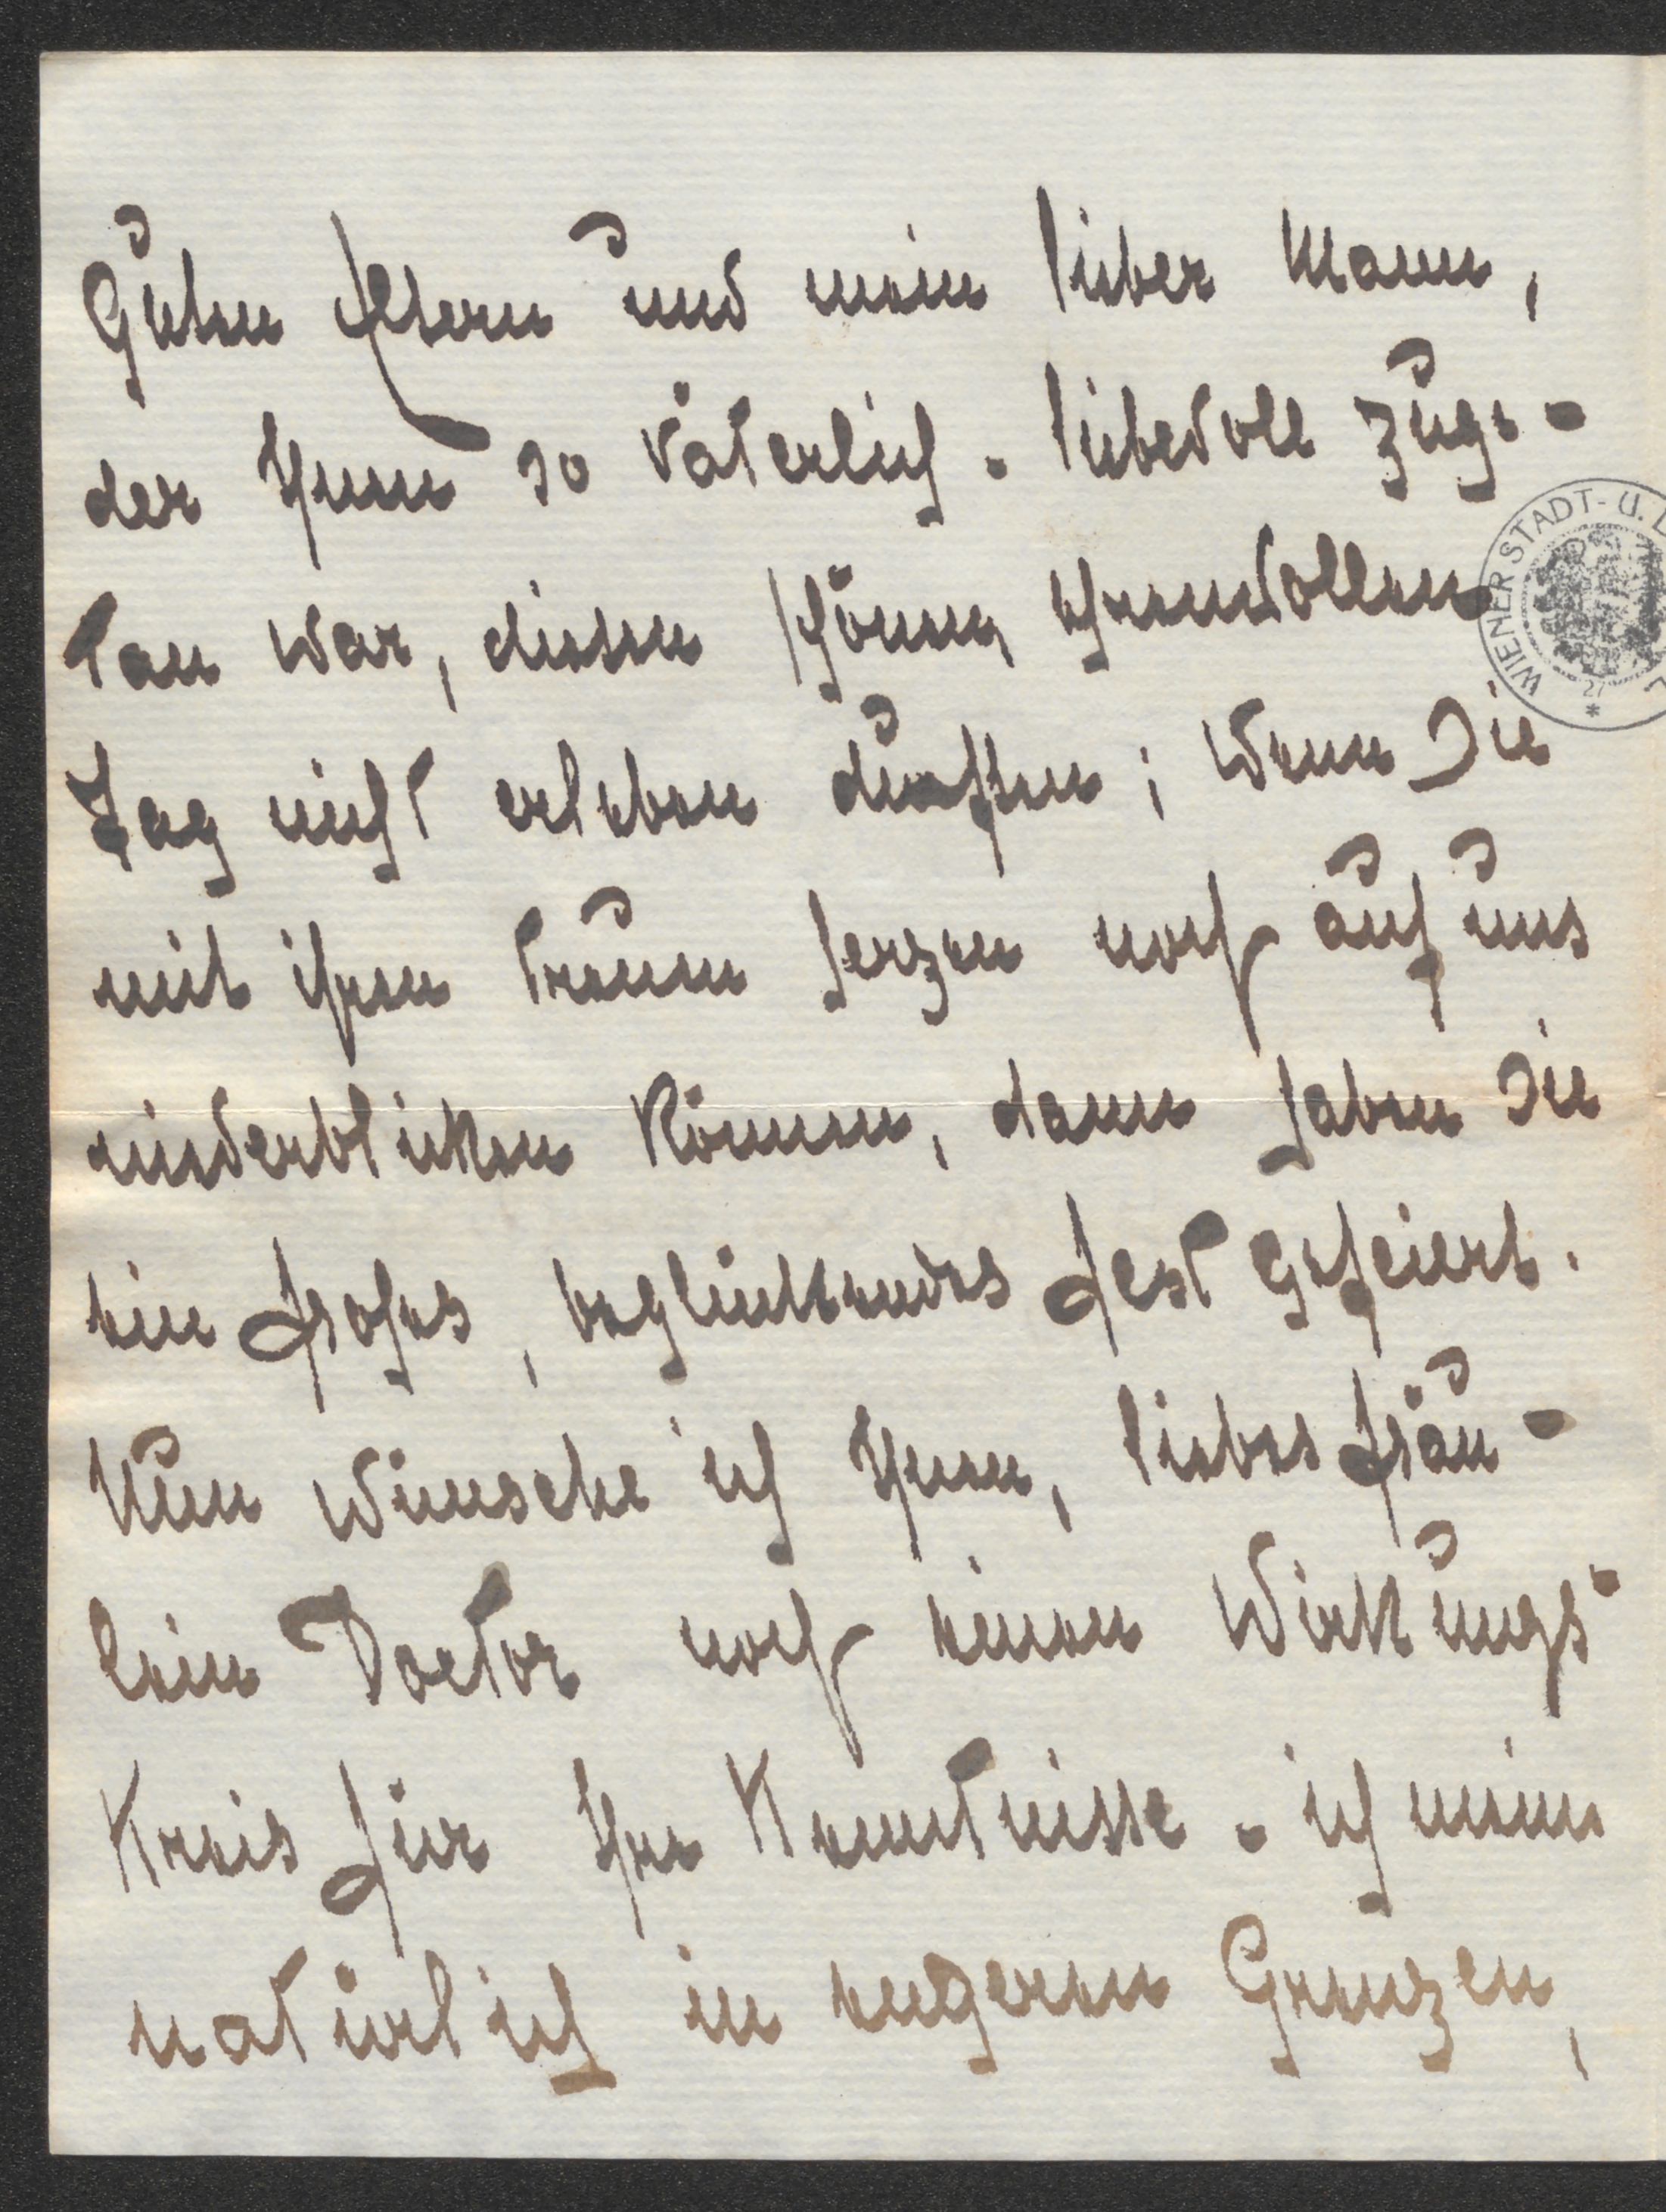 Guten Eltern und mein lieber Mann,
der Ihnen so väterlich - liebevoll zuge-
tan war, diesen schönen, ehrenvollen
Tag nicht erleben durften; wenn Sie
mit ihren treuen Herzen noch auf uns
niederblicken können, dann haben Sie
ein frohes, beglückendes Fest gefeiert.
Nun wünsche ich Ihnen, liebes Fräu-
lein Doctor noch einen Wirkungs-
Kreis für Ihre Kenntnisse - ich meine
natürlich in engeren Grenzen,
WIENER STADT- U. L
27